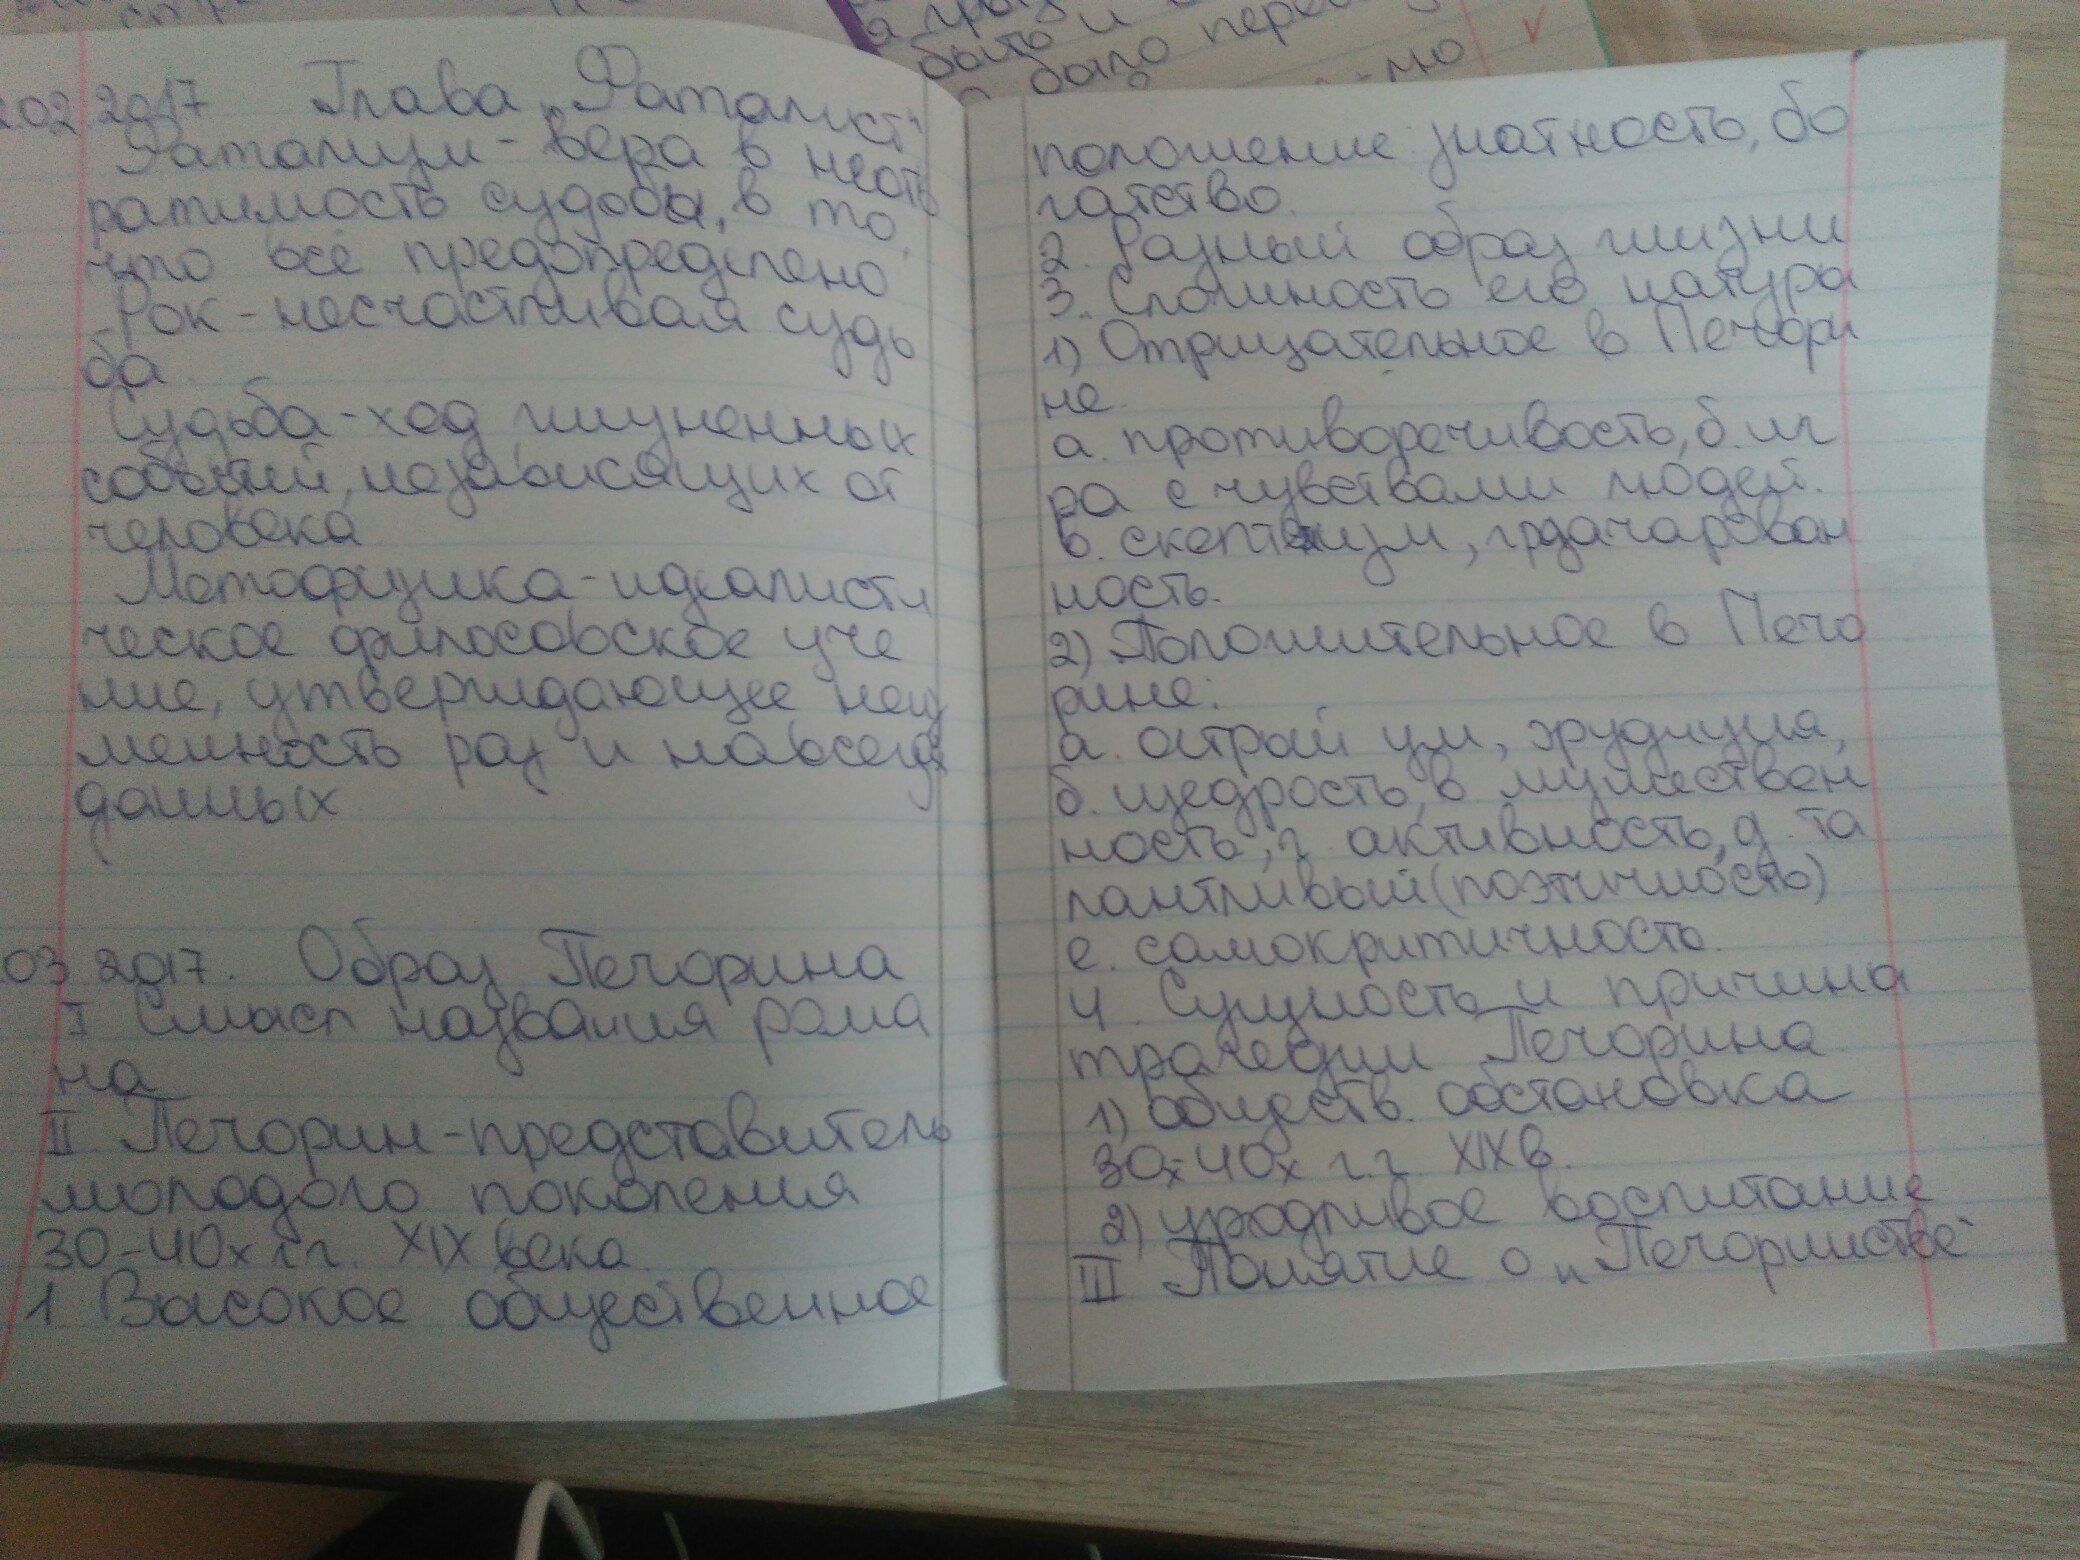 .02.2017 Глава „Фаталист"
Фатализм - вера в неотв
ратимость судобы, в то,
что всё предопределено
Рок - несчастливая судь
ба.
Судьба - ход жизненных
событий, независящих от
человека
Метофизика - идеалисти
ческое филосовское уче
ние, утверждающее неиз
менность раз и навсегда
данных
03 2017. Образ Печорина
I Смысл названия рома
на
II Печорин - представитель
молодого поколения
30-40х гг. XIX века
1 Высокое общественное
положение: знатность, бо
гатство.
2. Разный образ жизни
3. Сложность его натура
1) Отрицательное в Печори
не.
а. противоречивость, б. иг
ра с чувствами людей.
в. скептизм,
ность.
2) Положительное в Печо
рине:
а. острый ум, эрудиция,
б. щедрость, в мужествен
ность, г. активность, д. та
лантливый (поэтичность)
е. самокритичность.
4. Сущность и причина
трагедии Печорина
1) обществ. обстановка
30х-40х г.г. XIX в.
2) уродливое воспитание
III Понятие о „Печоринстве"
было